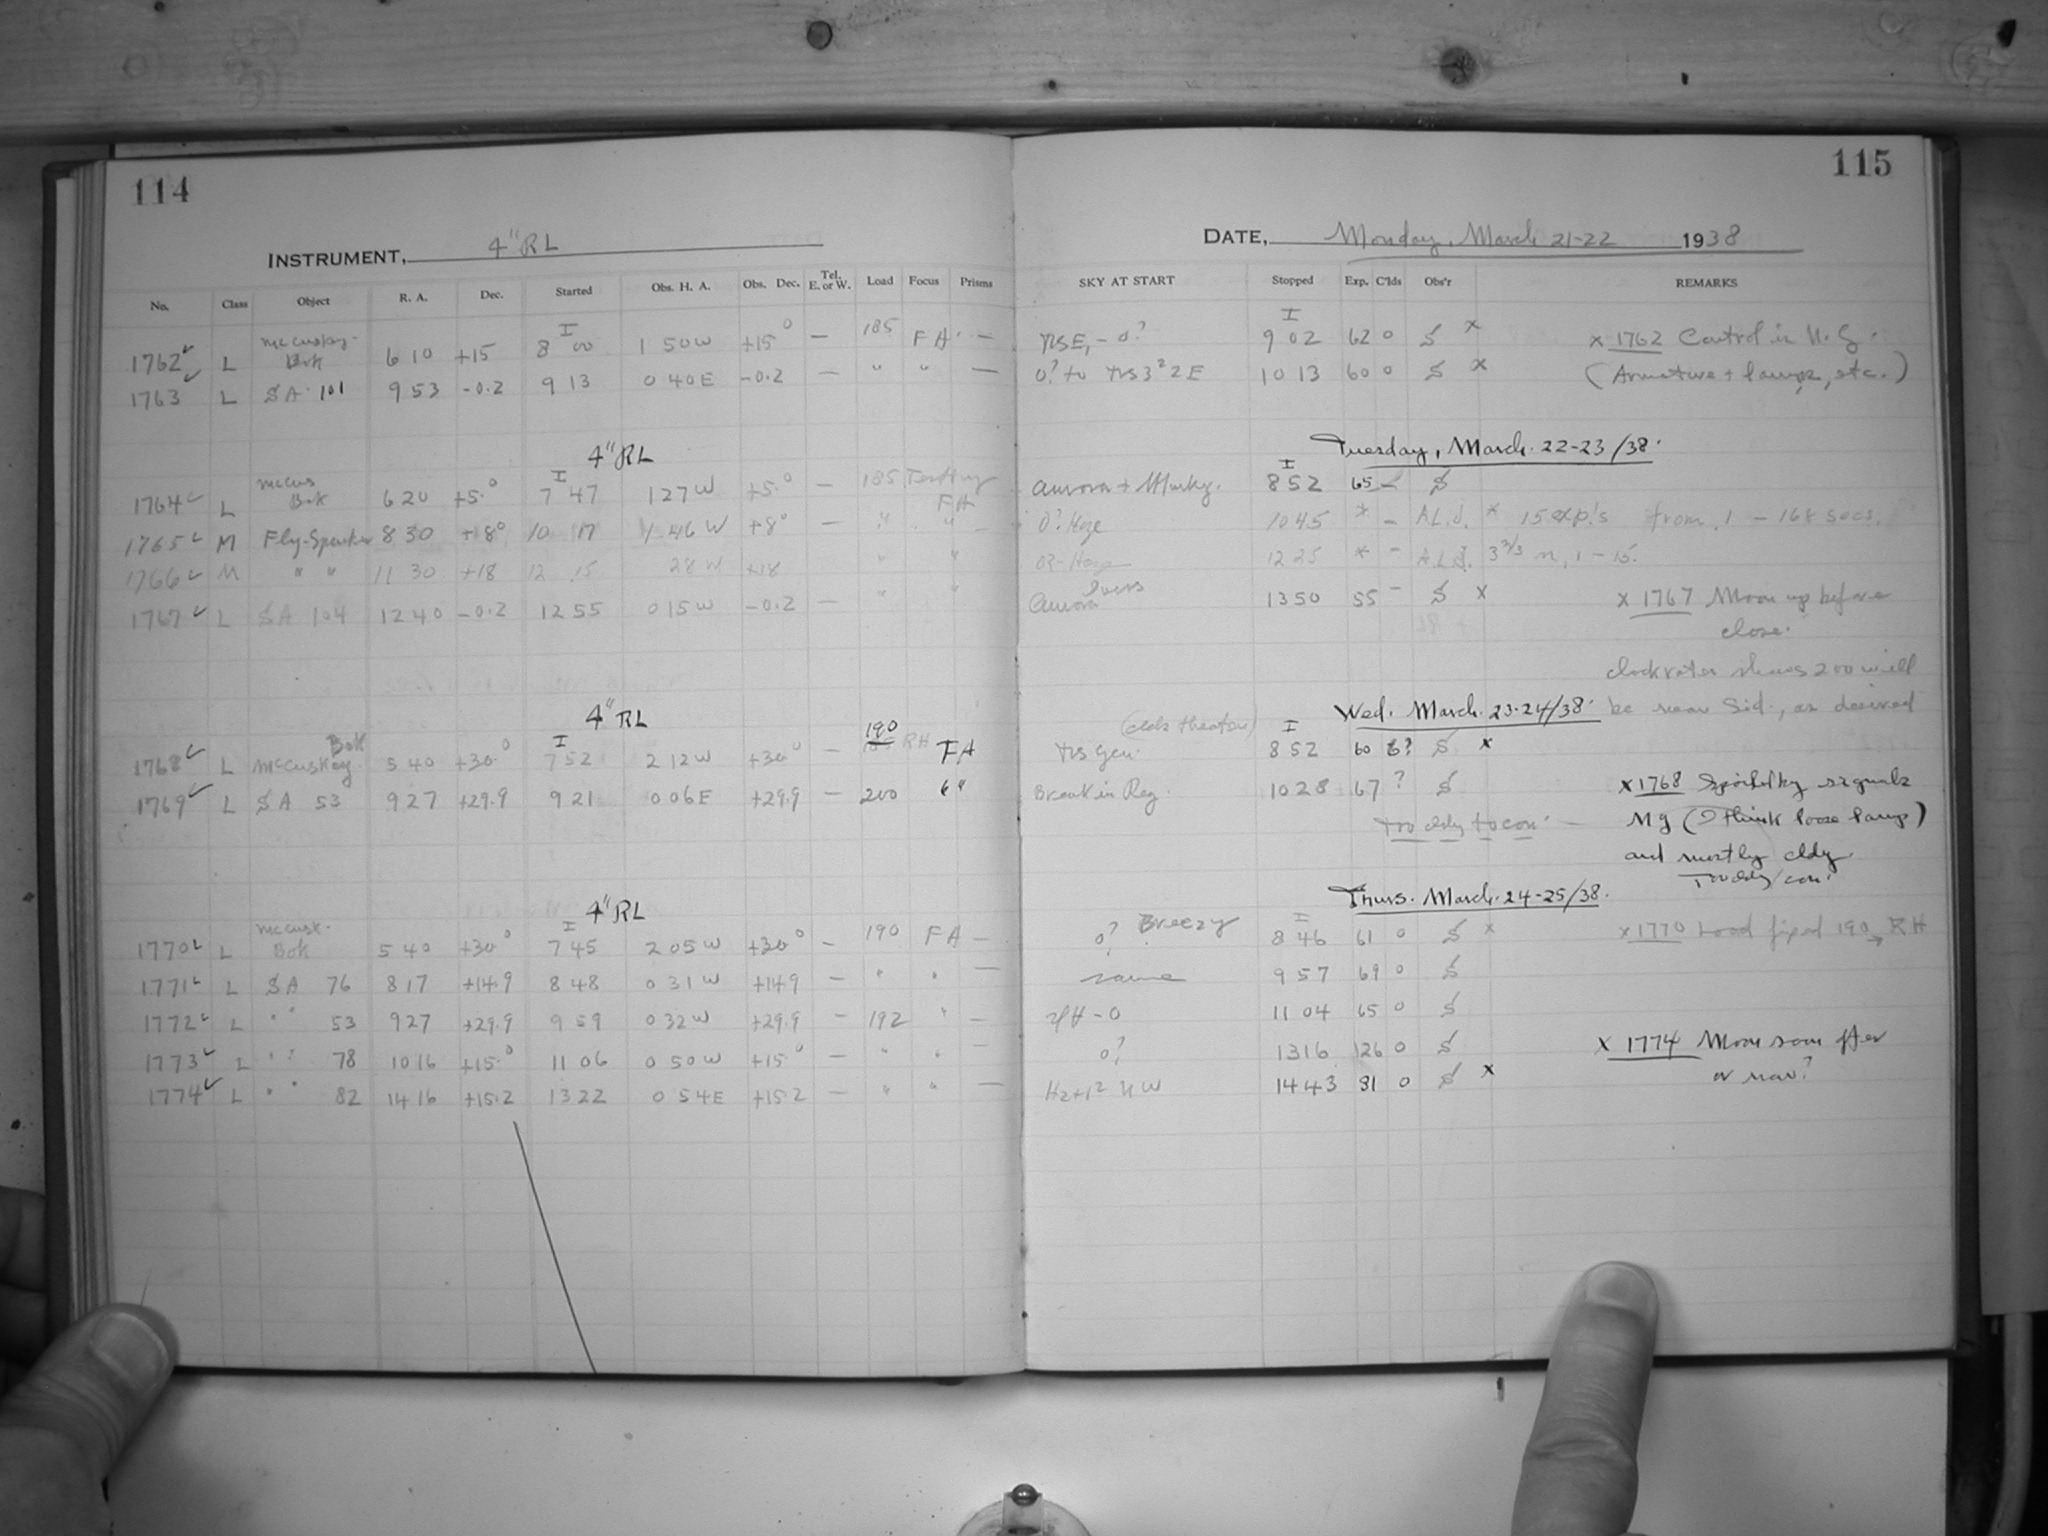 114
INSTRUMENT, 4" RL
No. Class Object R. A. Dec. Started Obs. H. A. Obs. Dec. Tel. E. or W. Load Focus Prisms
McCuskey- I
1762 L Bok 6 10 +15 8 00 1 50 W +15° — 185 FA —
1763 L SA 101 9 53 -0.2 9 13 0 40 E -0.2 — " " —
4" RL
1764 L Bok 6 20 +5.° 7 47 1 27 W +5.° — 185 FA
1765 M 8 30 +18° 10 17 1 46 W +8° — " " —
1766 M " " 11 30 +18 12 15 28 W +18 " "
1767 L SA 104 12 40 -0.2 12 55 0 15 W -0.2 — " "
4" RL
Bok I 190
1768 L McCuskey 5 40 +30° 7 52 2 12 W +30° — RH FA
1769 L SA 53 9 27 +29.9 9 21 0 06 E +29.9 — 200 "
4" RL
McCusk- I
1770 L Bok 5 40 +30° 7 45 2 05 W +30° — 190 FA —
1771 L SA 76 8 17 +14.9 8 48 0 31 W +14.9 — " " —
1772 L " " 53 9 27 +29.9 9 59 0 32 W +29.9 — 192 " —
1773 L " " 78 10 16 +15.° 11 06 0 50 W +15° — " " —
1774 L " " 82 14 16 +15.2 13 22 0 54 E +15.2 — " " —
115
DATE, Monday, March 21-22 1938
SKY AT START Stopped Exp. C'lds Obs'r REMARKS
I
9 02 62 0 S x x 1762 Control in
0? to 2 E 10 13 60 0 S x (Armature + lamps, etc.)
Tuesday, March. 22-23/38.
I
Aurora + Murky. 8 52 65 — S
0? Haze 10 45 * — * 15 exp.'s from 1 - 168 secs.
12 25 * — 1 - 15.
Aurora 13 50 55 — S x x 1767 Moon up before
close.
clock rates shows 200 will
Wed. March. 23-24/38. be near Sid., as desired
I
8 52 60 S x
Break in Reg. 10 28 67 ? S x 1768 signals
Mg (I think loose lamp)
and mostly cldy
Too cldy to con.
Thurs. March. 24-25/38.
Breezy I
0? 8 46 61 0 S x x 1770 Load fixed 190 RH
same 9 57 69 0 S
11 04 65 0 S
0? 13 16 126 0 S x 1774 Moon soon after
14 43 81 0 S x or near?